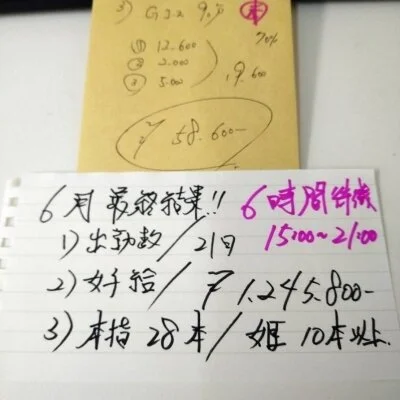 3) GJ2 9,万 本
70%
① 12.600
② 2.000
③ 5.000
19.600
58.600-
6月 最終結果!! 6時間待機
15:00~21:00
1) 出勤数/21日
2) 好給/71.245.800-
3) 本指 28本/姫 10本以上.